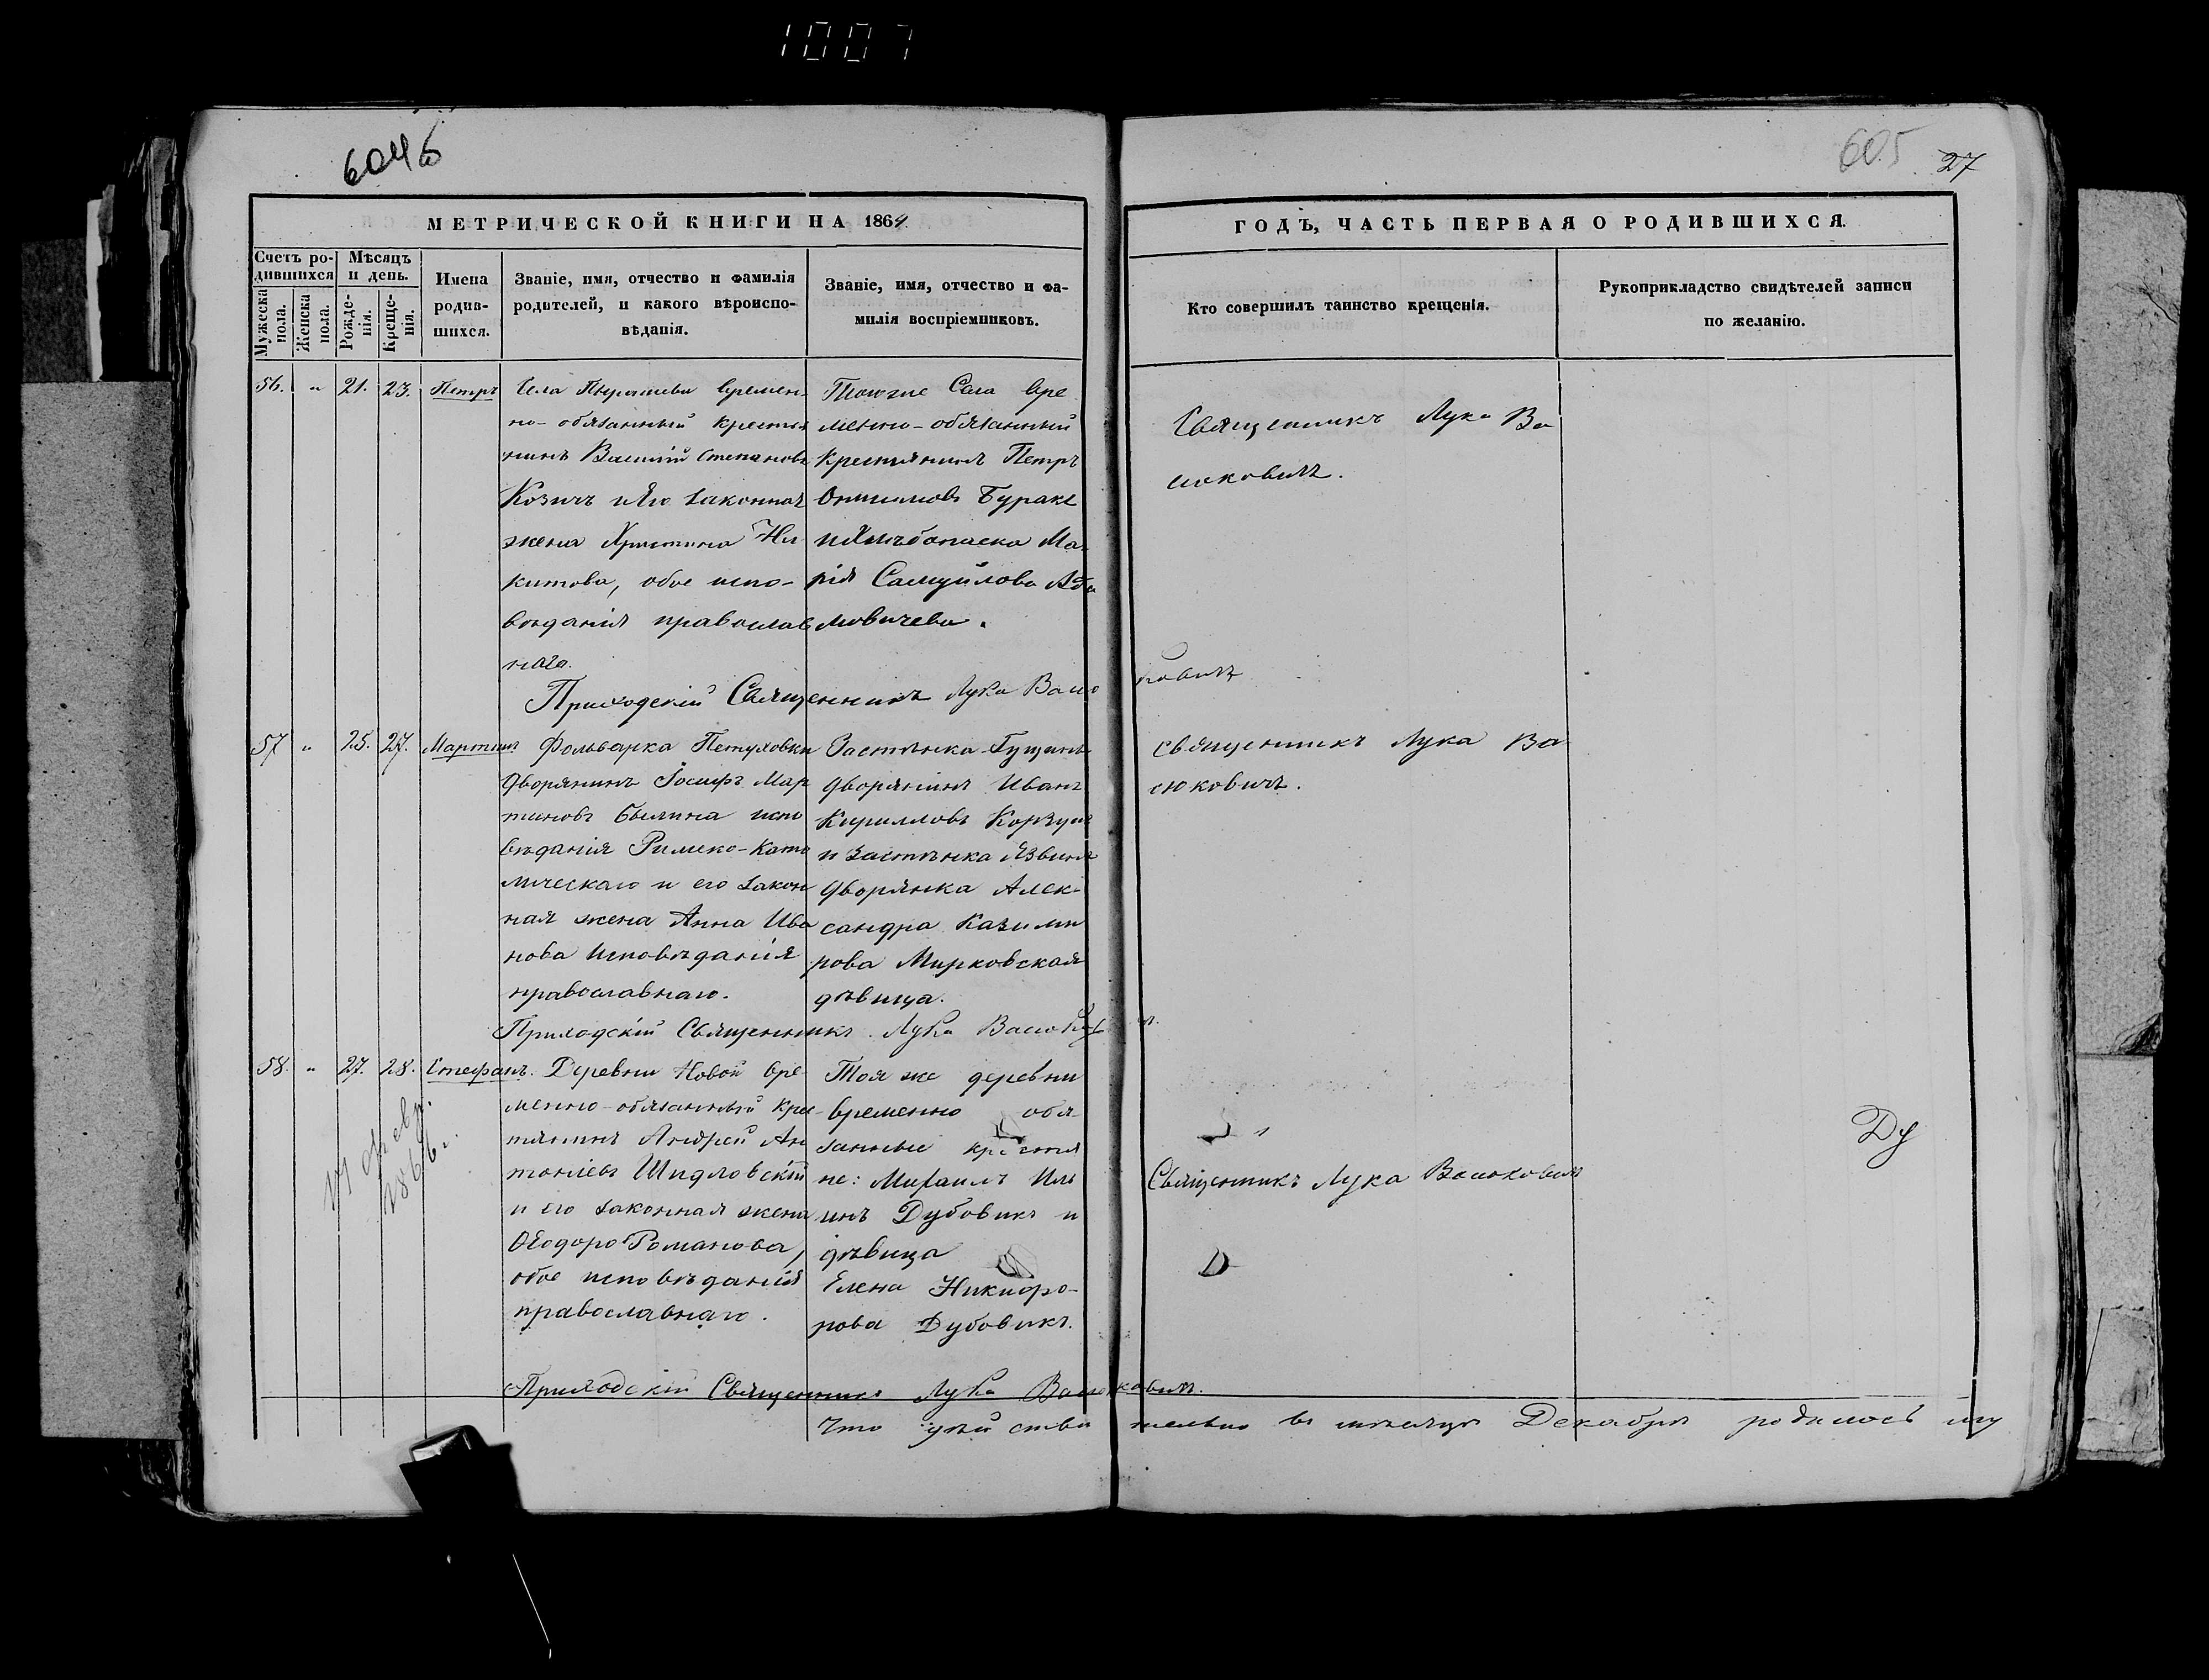 1007
604б
605
27
МЕТРИЧЕСКОЙ КНИГИ НА 1864
ГОДЪ, ЧАСТЬ ПЕРВАЯ О РОДИВШИХСЯ.
Счетъ ро-
дившихся
Мужеска
пола.
Женска
пола.
Мѣсяцъ
и день.
Рожде-
нія.
Креще-
нія.
Имена
родив-
шихся.
Званіе, имя, отчество и фамилія
родителей, и какого вѣроиспо-
вѣданія.
Званіе, имя, отчество и фа-
милія воспріемниковъ.
Кто совершилъ таинство крещенія.
Рукоприкладство свидѣтелей записи
по желанію.
56. " 21. 23. Петръ
Села времен-
но-обязанный крестья
нинъ Василій Степановъ
Козичъ и его законная
жена Христина Ни-
китова, обое испо-
вѣданія православ
наго.
Тогоже Села вре
менно-обязанный
крестьянинъ Петръ
Буракъ
Ма-
рія Самуйлова Ада
мовичева.
Священникъ Лука Ва
сюковичъ.
Приходскій Священникъ Лука Васю
ковичъ
57 " 25. 27. Мартинъ
Фольварка Петуховки
дворянинъ Іосифъ Мар
тиновъ Былина испо
вѣданія Римско-Като
лическаго и его закон
ная жена Анна Ива
нова исповѣданія
православнаго.
Застѣнка
дворянинъ Иванъ
Кирилловъ Корзунъ
и застѣнка Язвинъ
дворянка Алек-
сандра Казими
рова Мирковская
дѣвица.
Священникъ Лука Ва
сюковичъ.
Приходскій Священникъ Лука Васюкович
ъ.
58. " 27. 28. Стефанъ.
Деревни Новой вре-
менно-обязанный крес-
тянинъ Андрей Ан
тоніевъ Шидловскій
и его законная жена
Ѳеодора Романова,
обое исповѣданія
православнаго.
Тоя же деревни
временно обя-
занные крестья
не: Михаилъ Иль
инъ Дубовикъ и
дѣвица
Елена Никифо-
рова Дубовикъ.
Священникъ Лука Васюковичъ
Ду
февр.
1866 г.
Приходскій Священникъ Лука Васюковичъ.
Что дѣйстви тельно въ мѣсяцѣ Декабрѣ родилось му